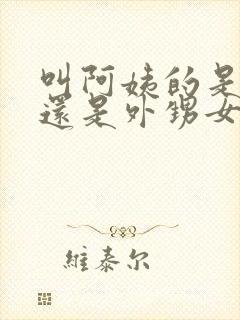 叫阿姨的是
還是外甥女
維泰尔